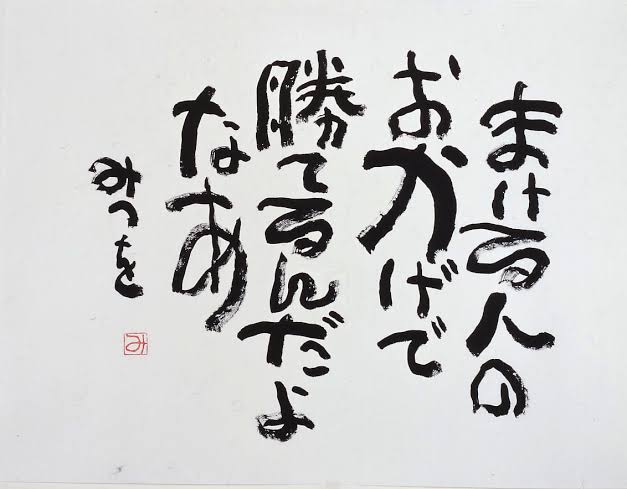 まける人の
おかげで
勝てるんだよ
なあ
みつを
み